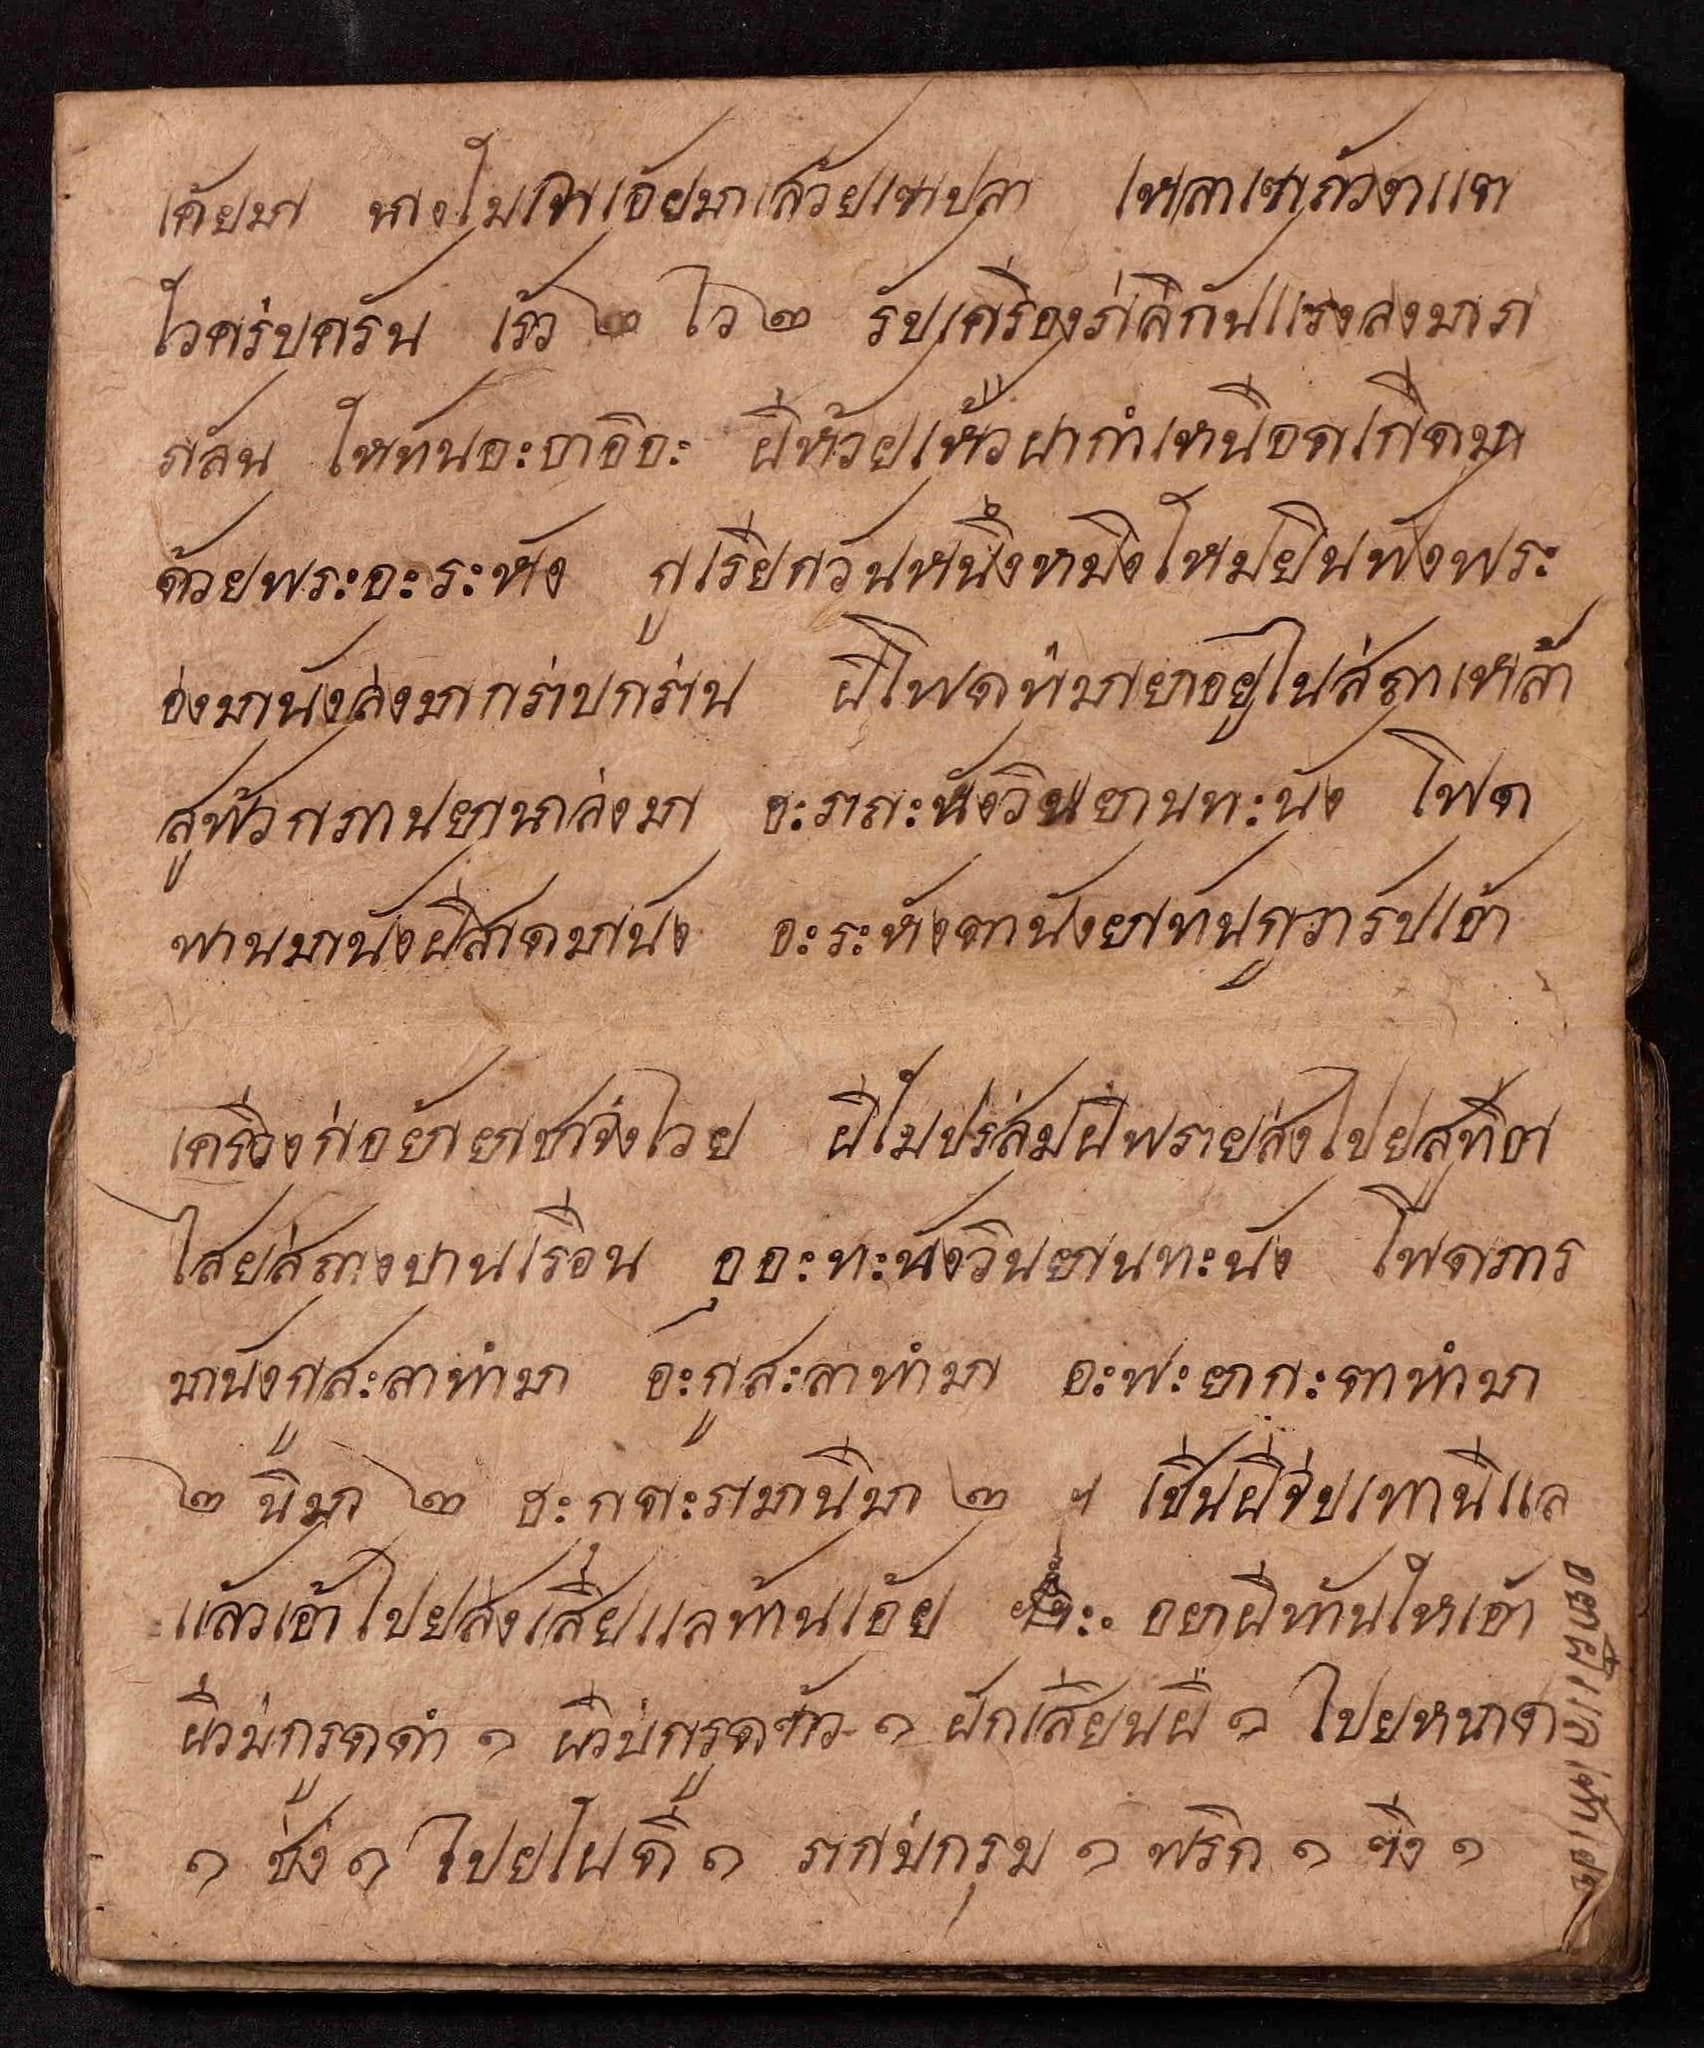 เค้ยมา นางไมเจาเอ้ยมาเส้วยเฃาปลา เหลาเฃาถ้วงาแต
ไวคร่บครัน เร้ว ๒ ไว ๒ รับเครื่องก่ลีกันแรงลงมาก
กลัน ไหทันอะอาอิอะ ผีห้วยเห้วผากำเหนือดเกีดมา
ด้วยพระอะระหัง กูเรียกวันหนึ้งหมึงไหมยินฟังพระ
อ่งมานังล่งมากร่าบกร่าน ผีโพดทีมายาอยู่ไนส่ถาเหล้า
สูพ้วกภานยานาล่งมา ยานทะนัง โพด
พานมานังผีสาดมานัง อะระหังตานังยาทันกูวารับเอ้า
เครื่องก่อย้ายาชาจ่งไวย ผีไมปร่ลุ่มผีพรายส่งไปยสูทีอา
ไสยส่ถางบานเรือน อุอะทะนังวินยานทะนัง โพดภาร
มานังกูสะลาทำมา อะกูสะลาทำมา อะพะยากะตาทำมา
๒ นิมา ๒ เชีนผีจ่บเทานีแล
แล้วเอ้าไปยส่งเสี้ยแลท้านเอ้ย อยาผีท้านไหเอ้า
ผีวม่กรูดดำ ๑ ผีวม่กรูดข้าว ๑ ฝักเสี้ยนผี ๑ ไปยหนาด
๑ ขีง ๑ ไปยไผดี ๑ รากม่กรุม ๑ พริก ๑ ขีง ๑
อยาผีแล